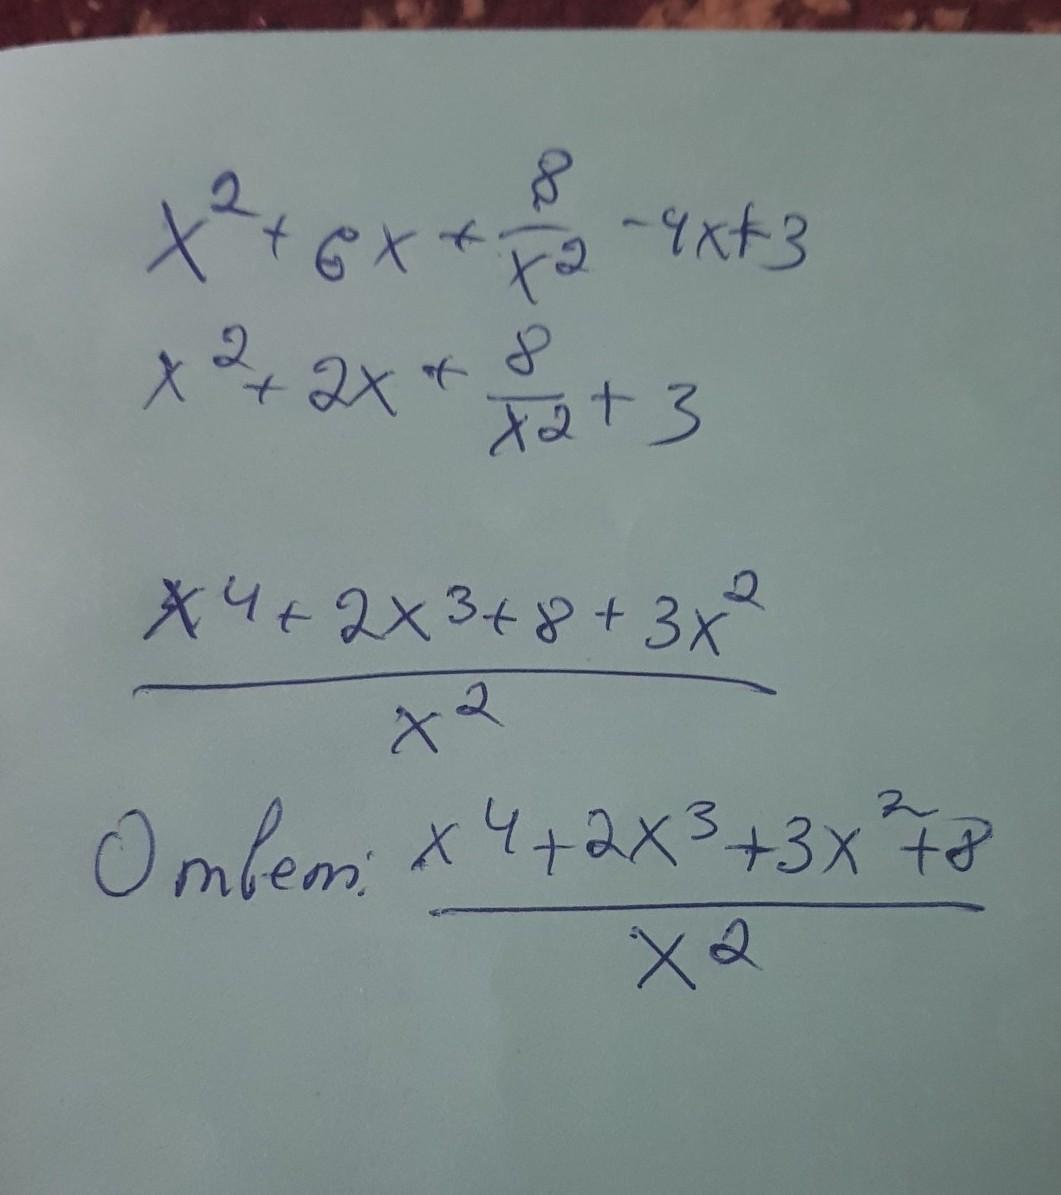 x² + 6x + 8/x² - 4x + 3
x² + 2x + 8/x2 + 3
x⁴ + 2x³ + 8 + 3x²
x²
Ответ: x⁴ + 2x³ + 3x² + 8
x²